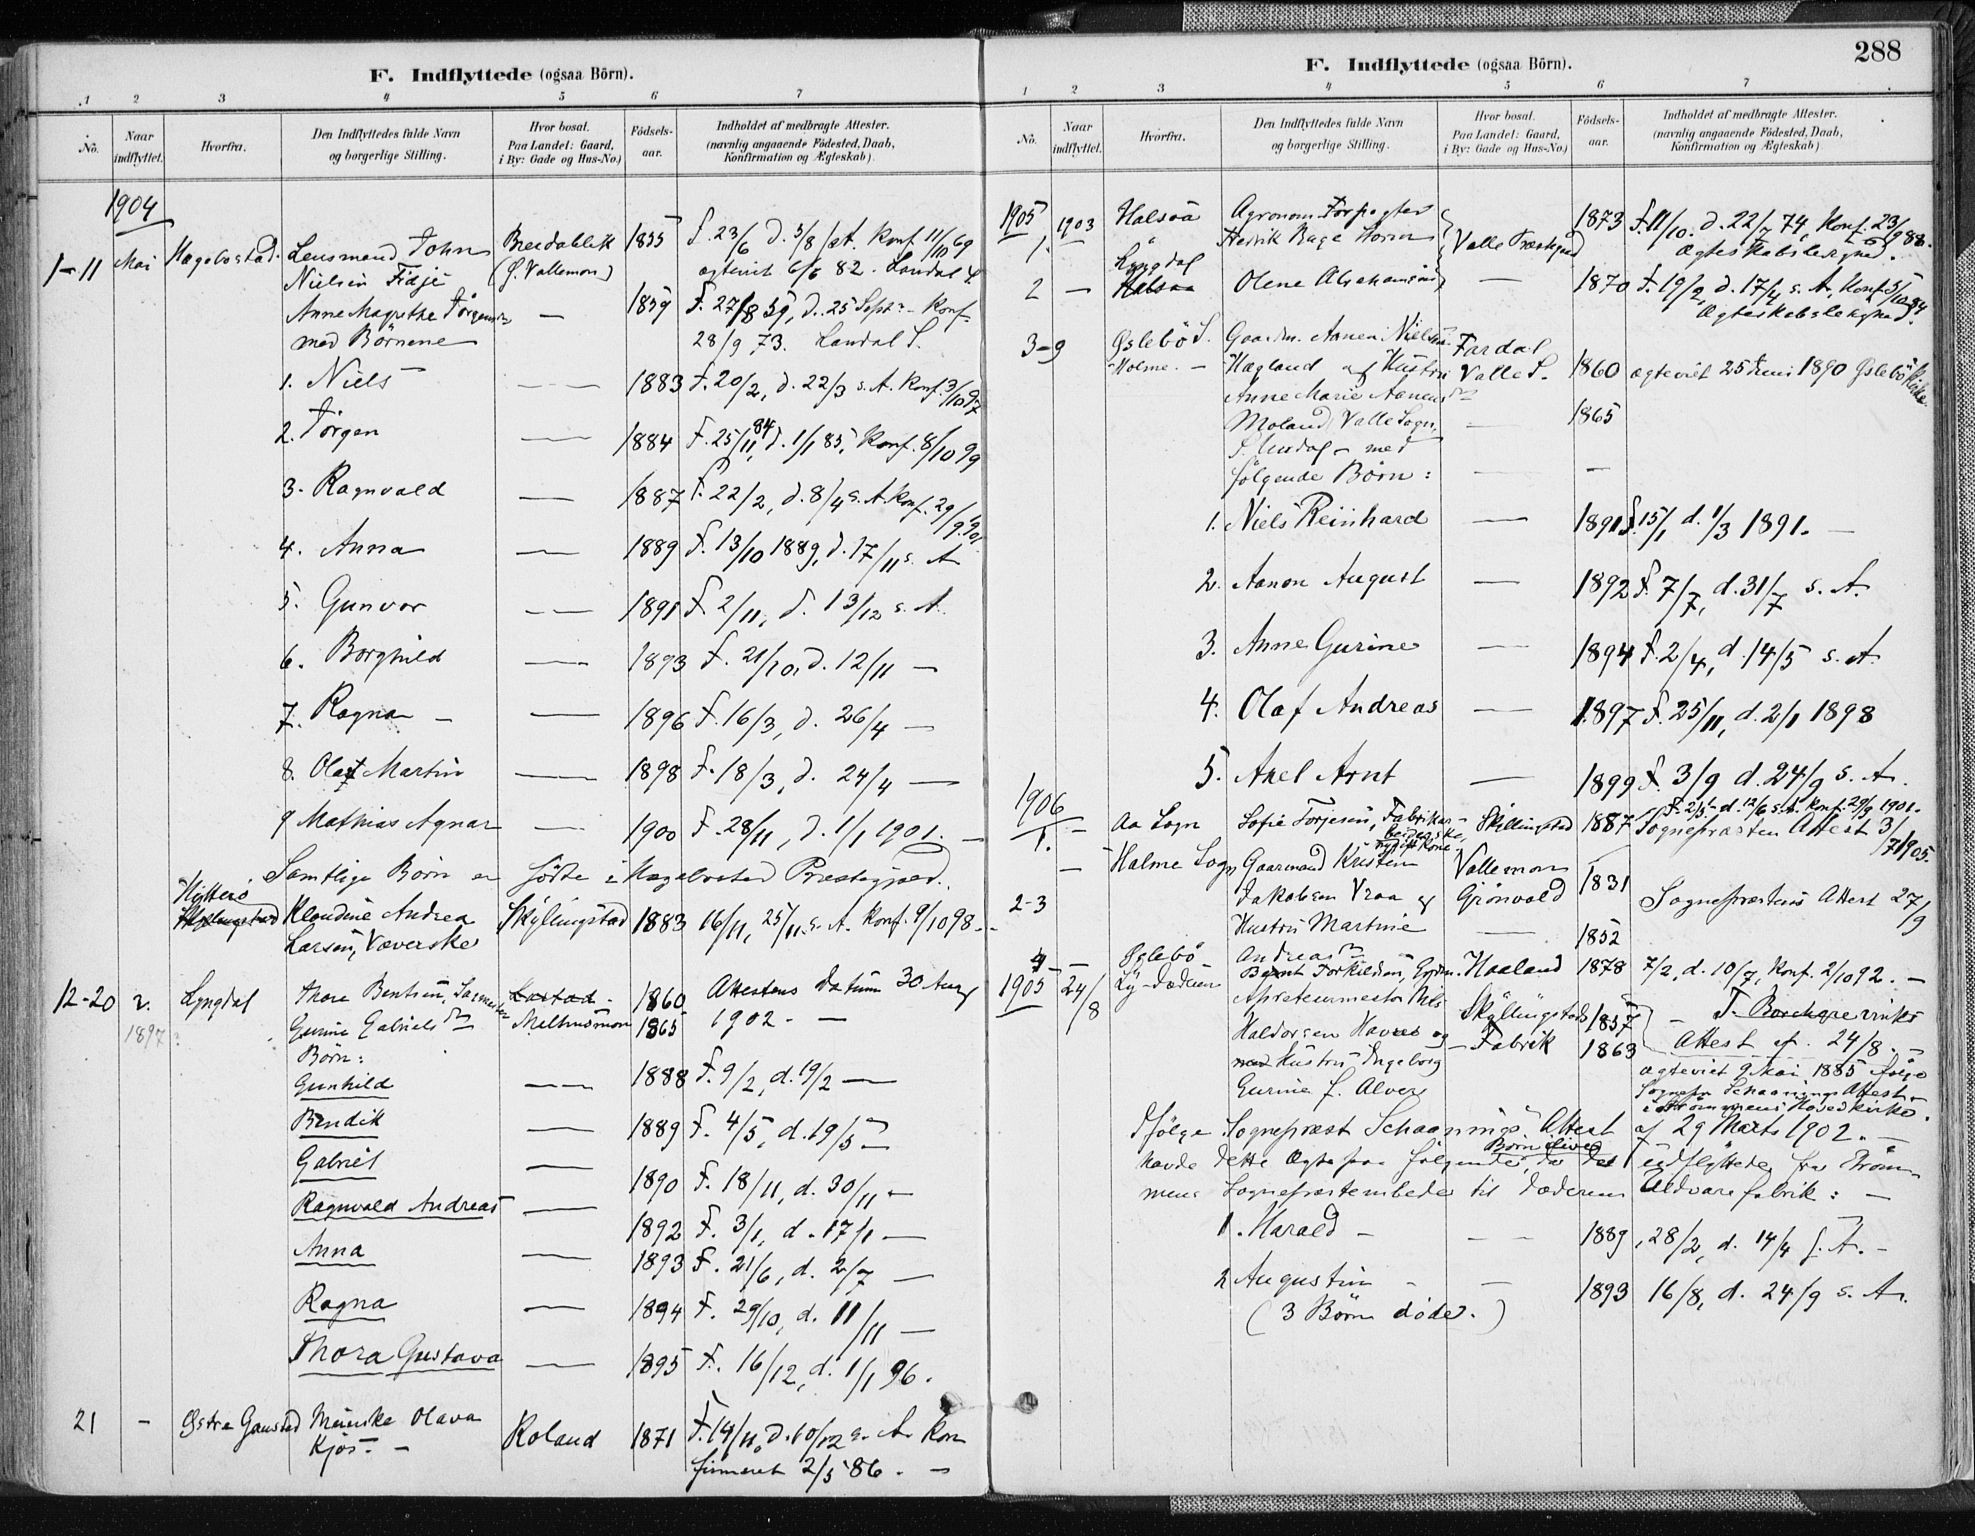 F. Indflyttede (ogsaa Börn).
1 2 3 4 5 6 7
No.
Naar indflyttet.
Hvorfra.
Den Indflyttedes fulde Navn og borgerlige Stilling.
Hvor bosat. Paa Landet: Gaard, i By: Gade og Hus-No.)
Födsels-aar.
Indholdet af medbragte Attester. (navnlig angaaende Födested, Daab, Konfirmation og Ægteskab)
1904
1-11 Mai Hægebostad. Lensmand John Breidablik 1855 F. 23/6 D. 5/8 s. A. Konf. 11/10 69
Nielsen Fidje (f. Vallemon) ægteviet 6/6 82. Landal S.
Anne Magrethe Törgens — 1859 F. 27/8 59, d. 25 Septr. Konf.
med Börnene 28/9 73. Landal S.
1. Niels — 1883 F. 20/2, d. 22/3 s. A. Konf. 3/10 97
2. Törgen — 1884 F. 25/11 84, d. 1/1 85, Konf. 8/10 99
3. Ragnvald — 1887 F. 22/2, d. 8/4 s. A. Konf. 29/9 1901
4. Anna — 1889 F. 13/10 1889, d. 17/11 s. A
5. Gunvor — 1891 F. 2/11, d. 13/12 s. A.
6. Borghild — 1893 F. 21/10, d. 12/11 —
7. Ragna — — 1896 F. 16/3, d. 26/4 —
8. Olaf Martin — 1898 F. 18/3, d. 24/4 —
9 Mathias Agnar — 1900 F. 28/11, d. 1/1 1901. —
Samtlige Börn er födte i Hægebostad Præstegjeld.
Hitterö
Skylingstad Klaudine Andrea Skylingstad 1883 16/11, 25/11 s. A. Konf. 9/10 98 -
Larsen, Væverske
12-20 2. Lyngdal Thore Bentsen, Lastad - 1860 Attestens Datum 30 Aug
1897? Gurine Gabrielsdr Melhusmon 1865 1902. — —
Börn:
Gunhild — 1888 F. 9/2, d. 19/2 —
Bendik — 1889 F. 4/5, d. 19/5 —
Gabriel — 1890 F. 18/11, d. 30/11 —
Ragnvald Andreas — 1892 F. 3/1, d. 17/1 —
Anna — 1893 F. 21/6, d. 2/7 —
Ragna — 1894 F. 29/10, d. 11/11 —
Thora Gustava — 1895 F. 16/12, d. 1/1 96.
21 - Østre Gausdal Olava Roland 1871 F. 14/11, d. 10/12 s. A. Kon
Kjös. — firmeret 2/5 86. —
288
F. Indflyttede (ogsaa Börn).
1 2 3 4 5 6 7
No.
Naar indflyttet.
Hvorfra.
Den Indflyttedes fulde Navn og borgerlige Stilling.
Hvor bosat. Paa Landet: Gaard, i By: Gade og Hus-No.)
Födsels-aar.
Indholdet af medbragte Attester. (navnlig angaaende Födested, Daab, Konfirmation og Ægteskab)
1905 1903 Halsaa Agronom Forpagter 1873 F. 11/10. d. 22/2 74, Konf. 23/9 88.
1. — Henrik Bugge Valle Præstegd Ægteskabsløsigned.
Lyngdal
2 — Halsaa Olene — 1870 F. 19/2, d. 17/4 s. A, Konf. 5/10 84
3-9 Øslebö S. Gaardm. Aanen Nielsen Fardal
Holme. — Hægland og Hustru Valle S. 1860 ægteviet 25 Juni 1890 Øslebö Kirke.
Anne Marie Aanensdr
Moland, Valle Sogn, — 1865
med
følgende Börn: — —
1. Niels Reinhard — 1891 F. 15/1 d. 1/3 1891. —
2. Aanon August — 1892 F. 7/7, d. 31/7 s. A.
3. Anne Gurine — 1894 F. 2/4, d. 14/5 s. A.
4. Olaf Andreas — 1897 F. 25/11, d. 2/1 1898
5. Axel Arnt — 1899 F. 3/9 d. 24/9 s. A.
1906 F. 2/5 d. 12/6 s. A. Konf. 29/9 1901.
1. — Aa Sogn Sofie Torjesen, Fabrikar- Skillingstad 1887 Sognepræsten Attest 3/7 1905.
beiderske,
— Halme Sogn Gaarmand Kristen Vallemon
2-3 Jakobsen Vraa og Grönvold 1831 Sognepræstens Attest 27/9
Hustru Martine — 1852
Andreasdr
4 — Øslebö Bernt Torkildsen, Haaland 1878 7/2, d. 10/7, Konf. 2/10 92. —
1905 24/8 Apreteurmester Nils Skyllingstad 1857 —
Haldorsen og — Fabrik 1863 Attest af 24/8. —
med Hustru Ingeborg ægteviet 9 Mai 1885 ifølge
Gurine f. Alver Sognepr Schaanings Attest
i Strömmens Hovedkirke.
Ifölge Sognepræst Schaanings Attest af 29 Marts 1902. —
havde dette Ægtepar følgende Börn ilive, da det udflyttede fra Ström-
mens Sognepræstembede til Dæderens Uldvarefabrik: —
1. Harald — — 1889, 28/2, d. 14/4 s. A. —
2 Augustin — 1893 16/8, d. 24/9 s. A.
(3 Börn döde.)